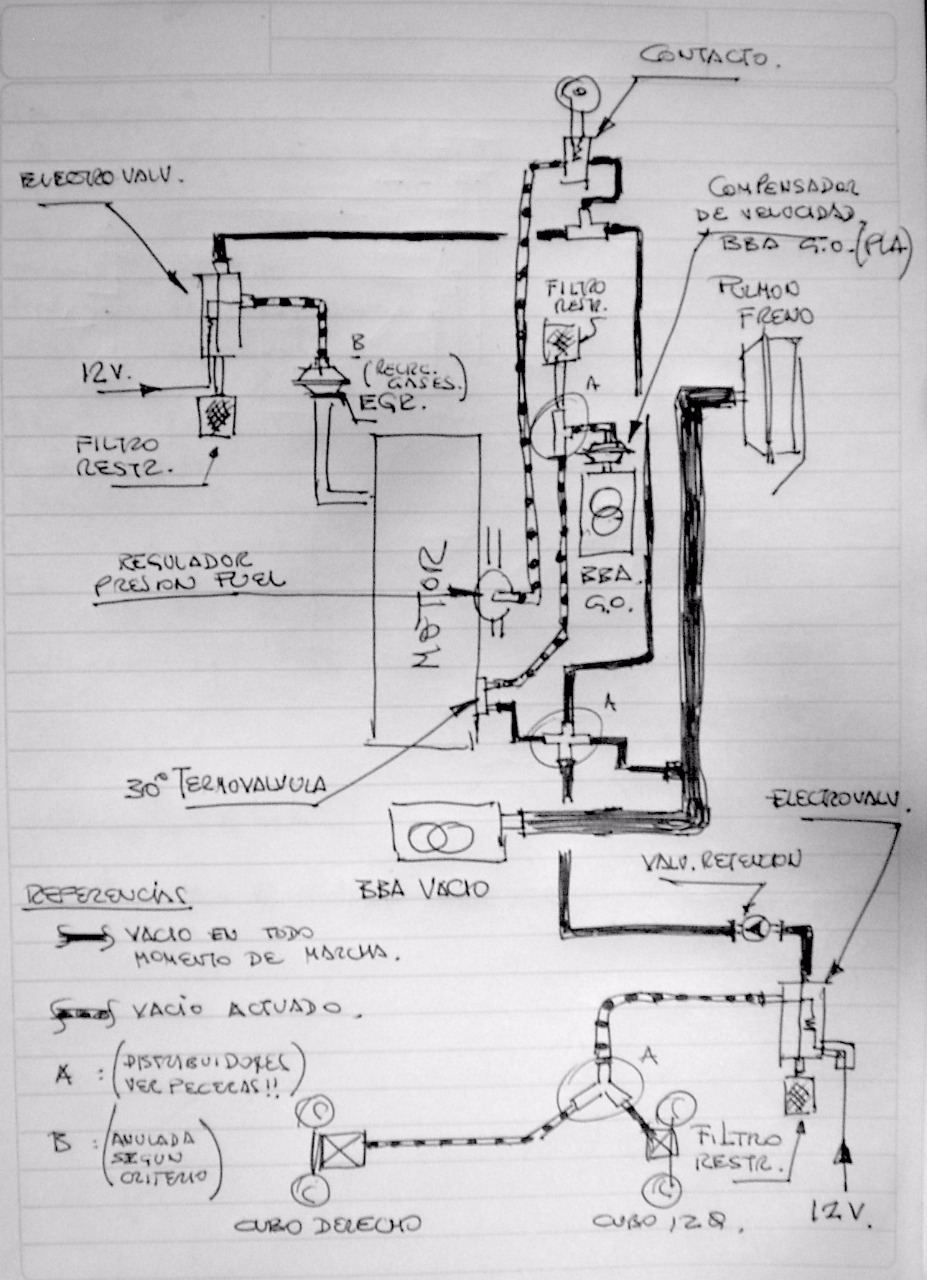 CONTACTO.
ELECTROVALV.
COMPENSADOR
DE VELOCIDAD
BBA G.O. (PLA)
PULMON
FRENO
FILTRO
RESTR.
A
12V.
B
(RECIRC.
GASES.)
EGR.
FILTRO
RESTR.
REGULADOR
PRESION FUEL
MOTOR
BBA.
G.O.
A
30° TERMOVALVULA
ELECTROVALV.
BBA VACIO
VALV. RETENCION
REFERENCIAS
VACIO EN TODO
MOMENTO DE MARCHA.
VACIO ACTUADO.
A : (DISTRIBUIDORES
VER PECERAS!!)
A
B : (ANULADA
SEGUN
CRITERIO)
FILTRO
RESTR.
12V.
CUBO DERECHO
CUBO IZQ.